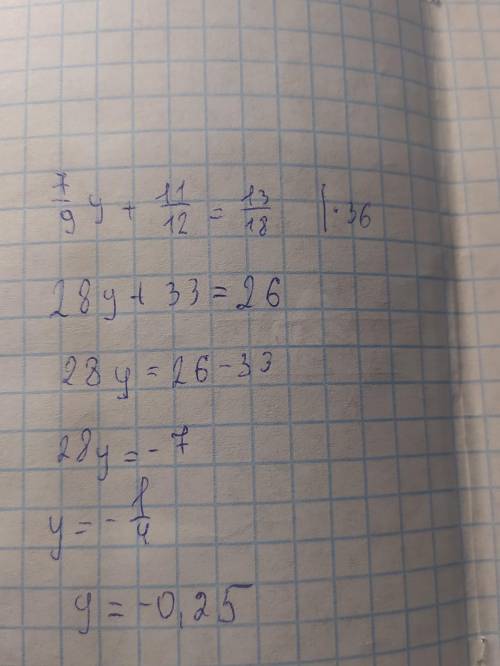 7/9 y + 11/12 = 13/18 | · 36
28y + 33 = 26
28y = 26 - 33
28y = - 7
y = - 1/4
y = -0,25